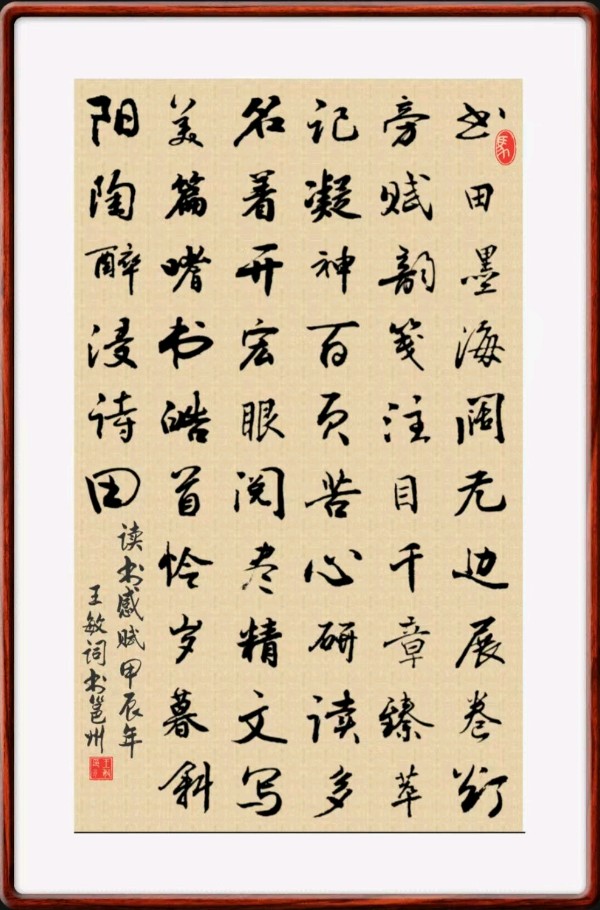 书田墨海阔无边展卷灯
旁赋韵笺注目千章臻萃
记凝神百页苦心研读多
名着开宏眼阅尽精文写
美篇嗜书皓首怜岁暮斜
阳陶醉浸诗田
读书感赋甲辰年
王敏词书邕州